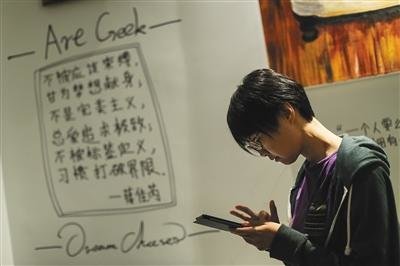 — Are Geek —
不被应该束缚,
甘为梦想献身,
不是完美主义,
总爱追求极致;
不被标签定义,
习惯打破界限.
— Dream Chaser —
“一个人要
拥有